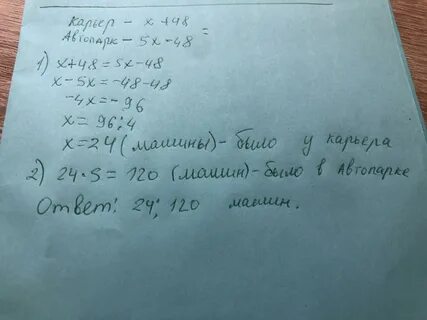 Карьер - x + 48
Автопарк - 5x - 48 =
1) x+48 = 5x-48
x - 5x = -48 - 48
-4x = - 96
x = 96 : 4
x = 24 (машины) - было у карьера
2) 24 · 5 = 120 (машин) - было в Автопарке
Ответ: 24; 120 машин.